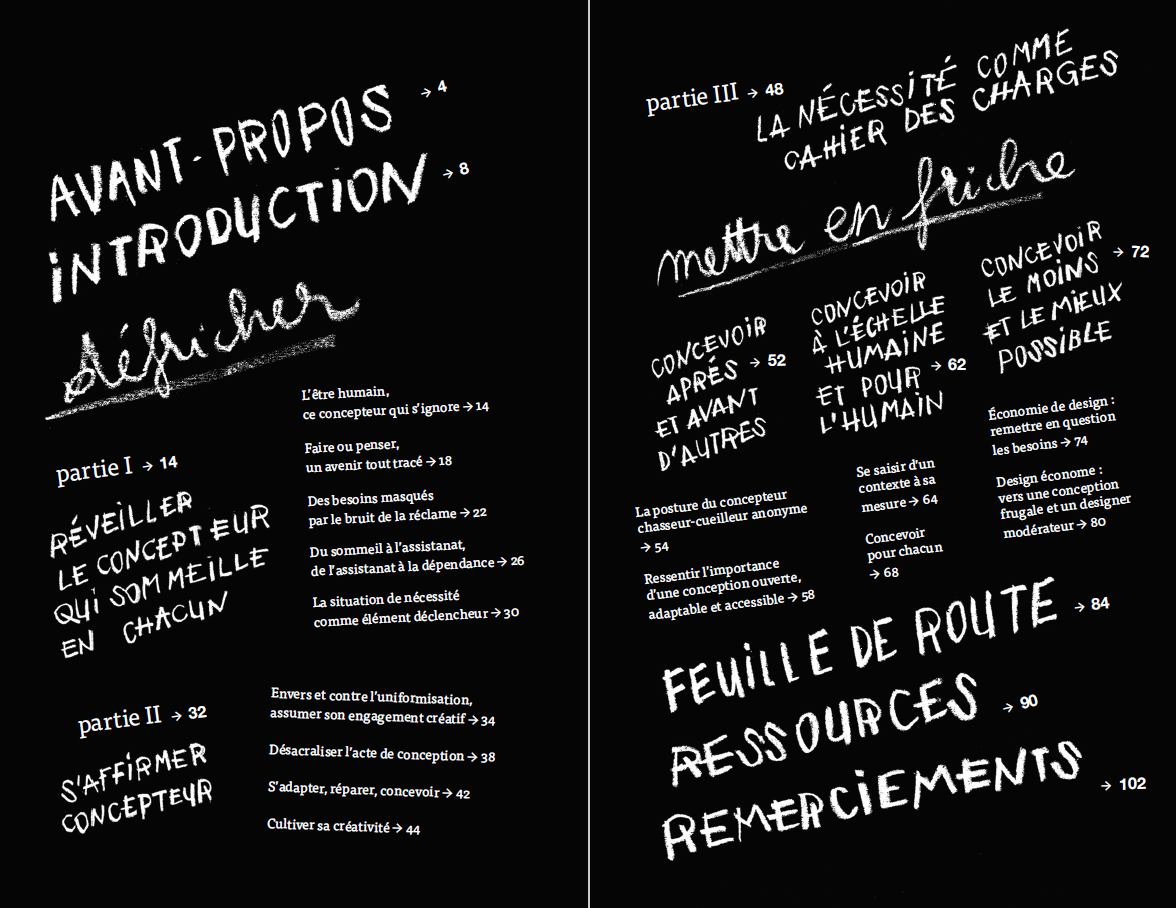 AVANT-PROPOS → 4
INTRODUCTION → 8
défricher
partie I → 14
RÉVEILLER
LE CONCEPTEUR
QUI SOMMEILLE
EN CHACUN
L'être humain,
ce concepteur qui s'ignore → 14
Faire ou penser,
un avenir tout tracé → 18
Des besoins masqués
par le bruit de la réclame → 22
Du sommeil à l'assistanat,
de l'assistanat à la dépendance → 26
La situation de nécessité
comme élément déclencheur → 30
partie II → 32
S'AFFIRMER
CONCEPTEUR
Envers et contre l'uniformisation,
assumer son engagement créatif → 34
Désacraliser l'acte de conception → 38
S'adapter, réparer, concevoir → 42
Cultiver sa créativité → 44
partie III → 48
LA NÉCESSITÉ COMME
CAHIER DES CHARGES
mettre en friche
CONCEVOIR
APRÈS → 52
ET AVANT
D'AUTRES
La posture du concepteur
chasseur-cueilleur anonyme
→ 54
Ressentir l'importance
d'une conception ouverte,
adaptable et accessible → 58
CONCEVOIR
À L'ÉCHELLE
HUMAINE
ET POUR → 62
L'HUMAIN
Se saisir d'un
contexte à sa
mesure → 64
Concevoir
pour chacun
→ 68
CONCEVOIR → 72
LE MOINS
ET LE MIEUX
POSSIBLE
Économie de design :
remettre en question
les besoins → 74
Design économe :
vers une conception
frugale et un designer
modérateur → 80
FEUILLE DE ROUTE → 84
RESSOURCES → 90
REMERCIEMENTS → 102